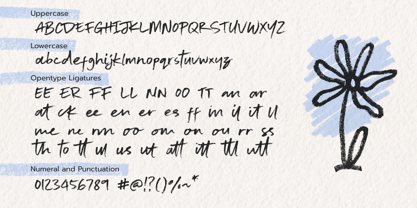 Uppercase
ABCDEFGHIJKLMNOPQRSTUVWXYZ
Lowercase
abcdefghijklmnopqrstuvwxyz
Opentype Ligatures
EE ER FF LL NN OO TT an ar
at ck ee en er es ff in il it ll
me ne nn oo om on ou rr ss
th to tt ul us ut att itt ttl utt
Numeral and Punctuation
0123456789 #@!?()%~*